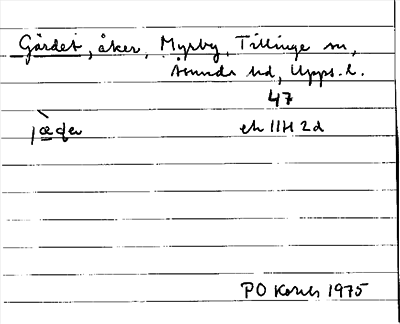 Gärdet, åker, Myrby, Tillinge sn,
Åsunda hd, Upps. l.
47
jæ̀ḍeṛ ek 11H 2d
PO 1975